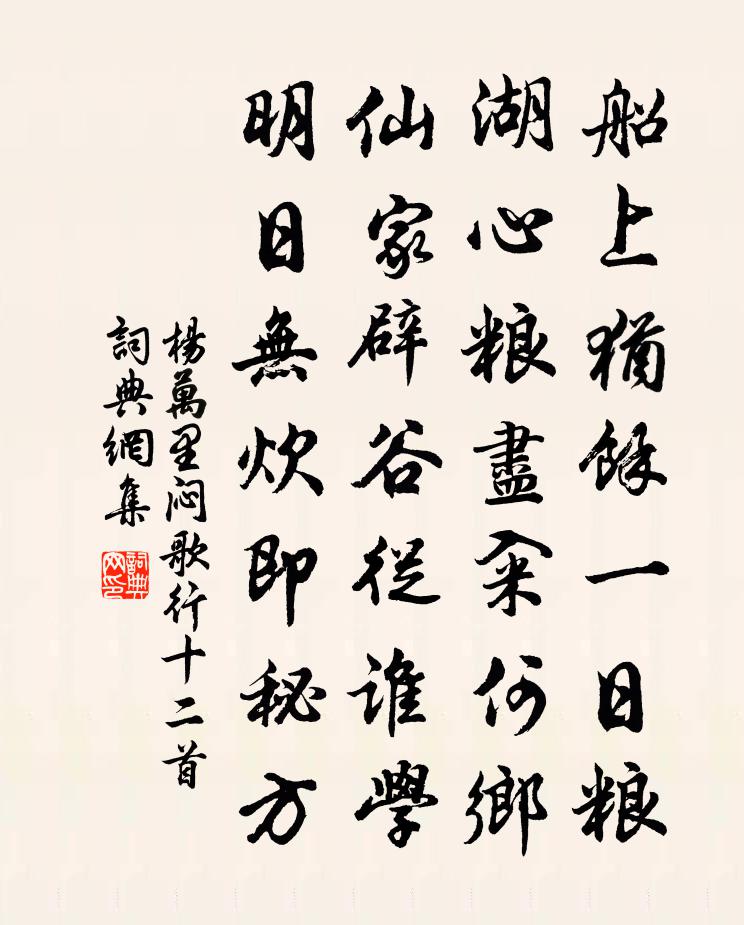 船上猶餘一日粮
湖心粮盡籴何鄉
仙家辟谷從誰學
明日無炊即秘方
楊萬里闷歌行十二首
詞典網集
詞典网印